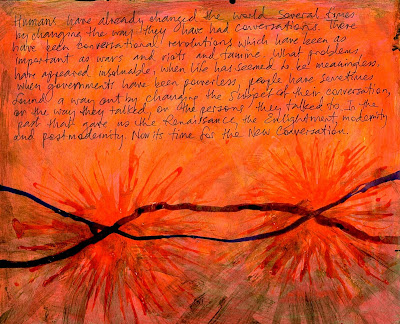 Humans have already changed the world several times
by changing the way they have had conversations. There
have been conversational revolutions which have been as
important as wars and riots and famine. When problems
have appeared insoluble, when life has seemed to be meaningless
when governments have been powerless, people have sometimes
found a way out by changing the subject of their conversation,
or the way they talked, or the persons they talked to. In the
past that gave us the Renaissance, the Enlightenment, modernity
and postmodernity. Now it's time for the New Conversation.